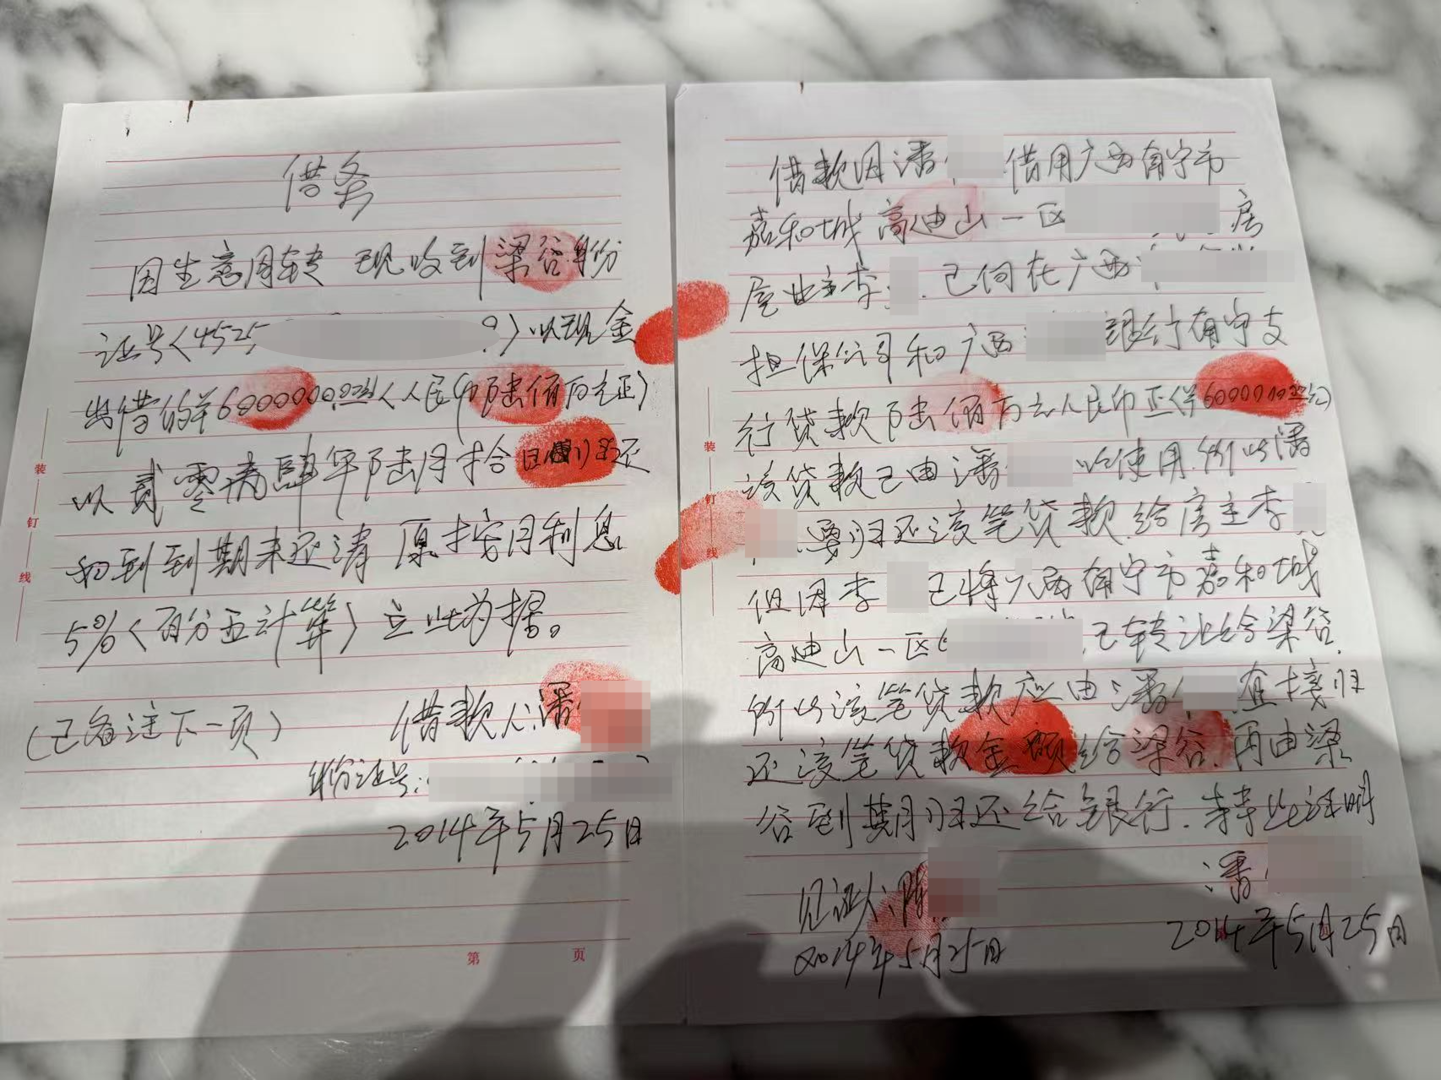 借条
因生意周转 现收到梁谷身份
证号〈4525 9〉以现金
出借的羊6000000.00元〈人民币陆佰万元正〉
以贰零壹肆年陆月拾 还
如到到期未还清 原按月利息
5%〈百分五计算〉立此为据。
(已备注下一页)
借款人:潘
身份证号:
2014年5月25日
第 页
装
钉
线
借款因潘 借用广西南宁市
嘉和城高迪山一区 房
屋业主李 .已向在广西
担保公司和广西 银行南宁支
行贷款陆佰万元人民币正〈羊6000000 〉
该贷款已由潘 以使用.所以潘
要归还该笔贷款.给房主李
但因李 已将广西南宁市嘉和城
高迪山一区 .已转让给梁谷.
所以该笔贷款应由潘 直接归
还该笔贷款金额给梁谷.再由梁
谷到期归还给银行.特此证明
潘
2014年5月25日
见证人:陈
2014年5月25日
装
钉
线